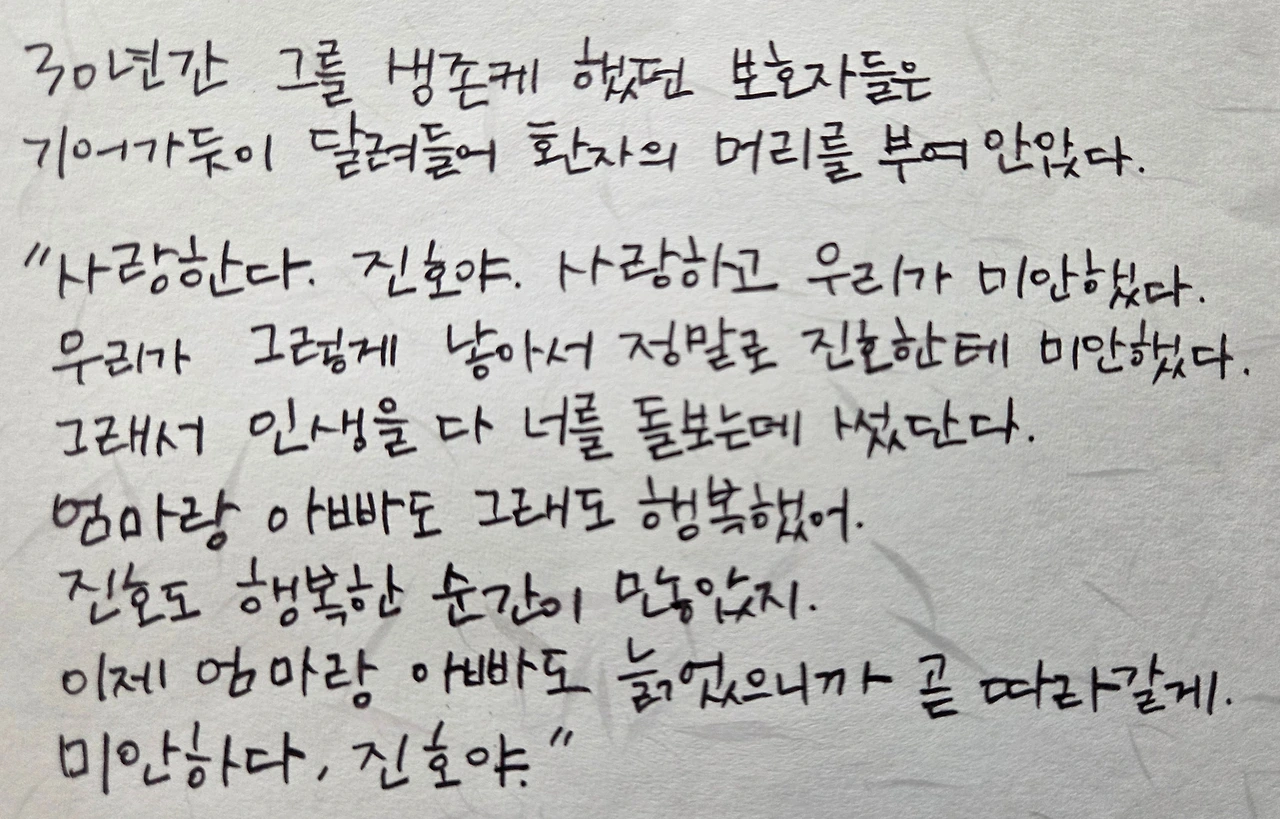 30년간 그를 생존케 했던 보호자들은
기어가듯이 달려들어 환자의 머리를 부여 안았다.
"사랑한다. 진호야. 사랑하고 우리가 미안했다.
우리가 그렇게 낳아서 정말로 진호한테 미안했다.
그래서 인생을 다 너를 돌보는데 썼단다.
엄마랑 아빠도 그래도 행복했어.
진호도 행복한 순간이 많았지.
이제 엄마랑 아빠도 늙었으니까 곧 따라갈게.
미안하다, 진호야."